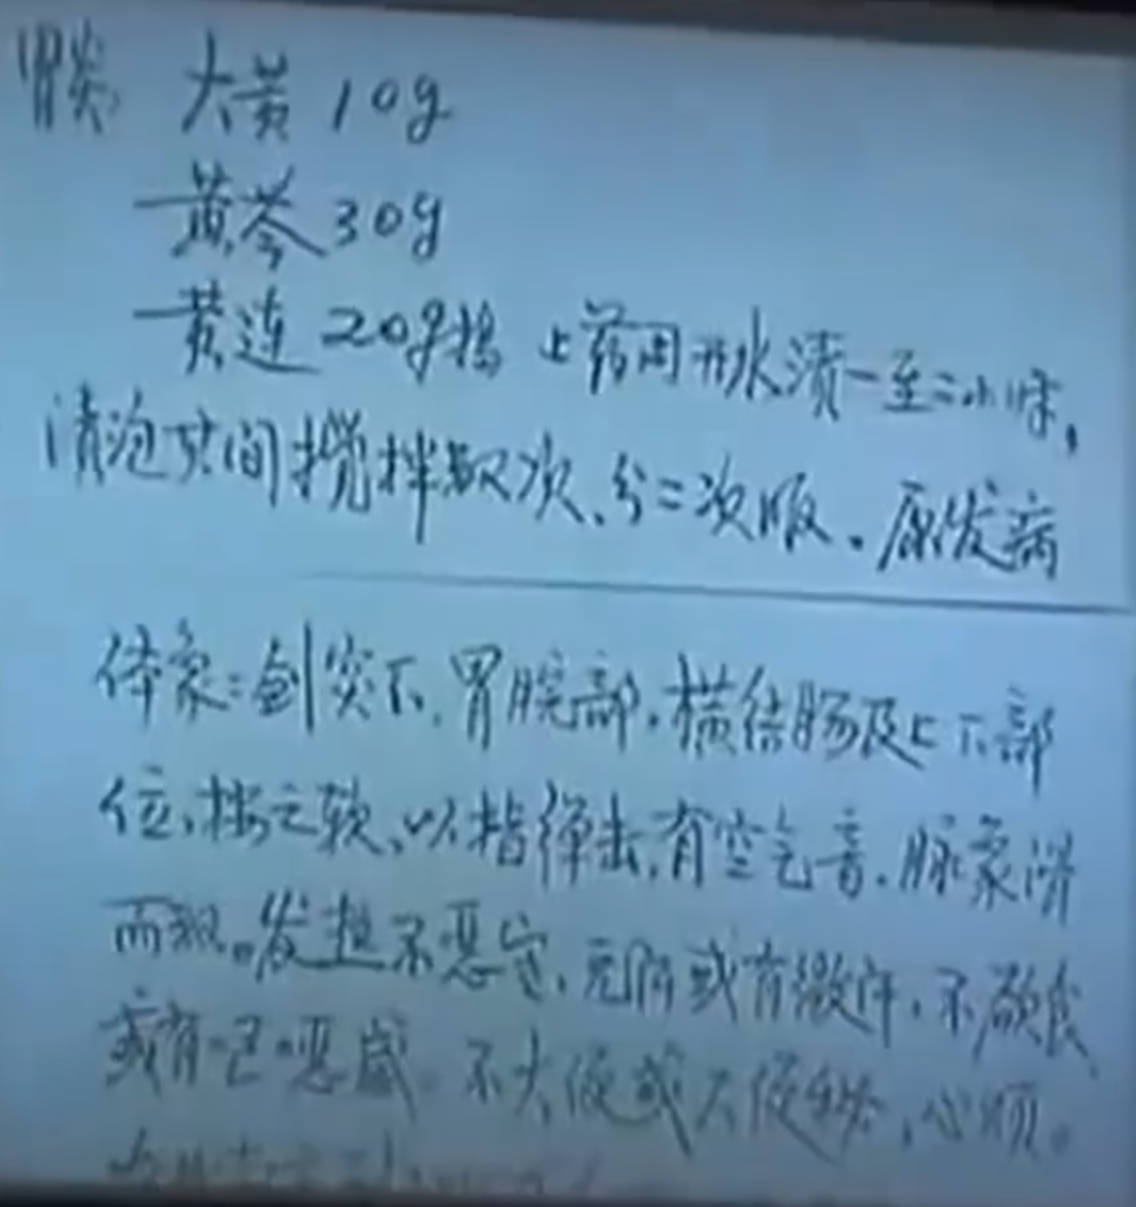 肾炎 大黄 10g
黄芩 30g
黄连 20g捣 上药用开水渍一至二小时,
渍泡其间搅拌数次、分二次服。原发病
体象:剑突下、胃脘部、横结肠及上下部
位,按之软、以指弹击,有空气音.脉象滑
而数。发热不恶寒,无汗或有微汗,不欲食
或有恶感。不大便或大便秘,心烦。